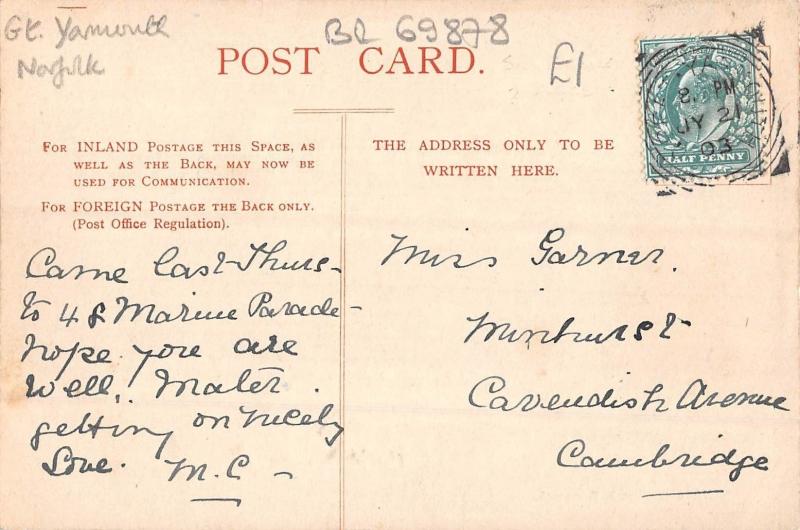 Gt. Yarmouth
Norfolk
BR 69878
£1
POST CARD.
For INLAND Postage this Space, as
well as the Back, may now be
used for Communication.
For FOREIGN Postage the Back only.
(Post Office Regulation).
THE ADDRESS ONLY TO BE
WRITTEN HERE.
8. PM
JY 21
03
HALF PENNY
Came last Thurs-
to 48 Marine Parade-
hope you are
well, Mater
getting on nicely
Love. M.C -
Miss Garner.
Cavendish Avenue
Cambridge